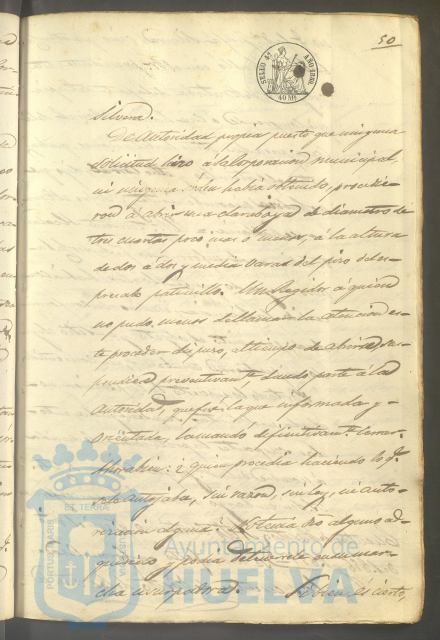 50
SELLO 4º AÑO 1860
40 Ms
Silvera.
De Autoridad propia, puesto que ninguna
solicitud hizo á la Corporacion municipal,
ni ninguna orden habia obtenido, procedie-
ron á abrir una claraboya de diametro de
tres cuartas poco mas ó menos, á la altura
de dos á dos y media varas del piso del es-
presado patinillo. Un Regidor á quien
no pudo menos de llamar la atencion es-
te proceder dispuso, al tiempo de abrirla, su-
pendieran preventivamte, dando parte á la
Autoridad, que fué la que informada y
orientada, la mandó definitivamte cerrar.
á quien procedia haciendo lo q.
se le antojaba, sin razon, sin ley, ni auto-
rizacion alguna: no tenia dro alguno ad-
quirido y podia detenersele en su mar-
cha
Si bien es cierto,
PORTUS MARIS ET TERRÆ
Ayuntamiento de
HUELVA